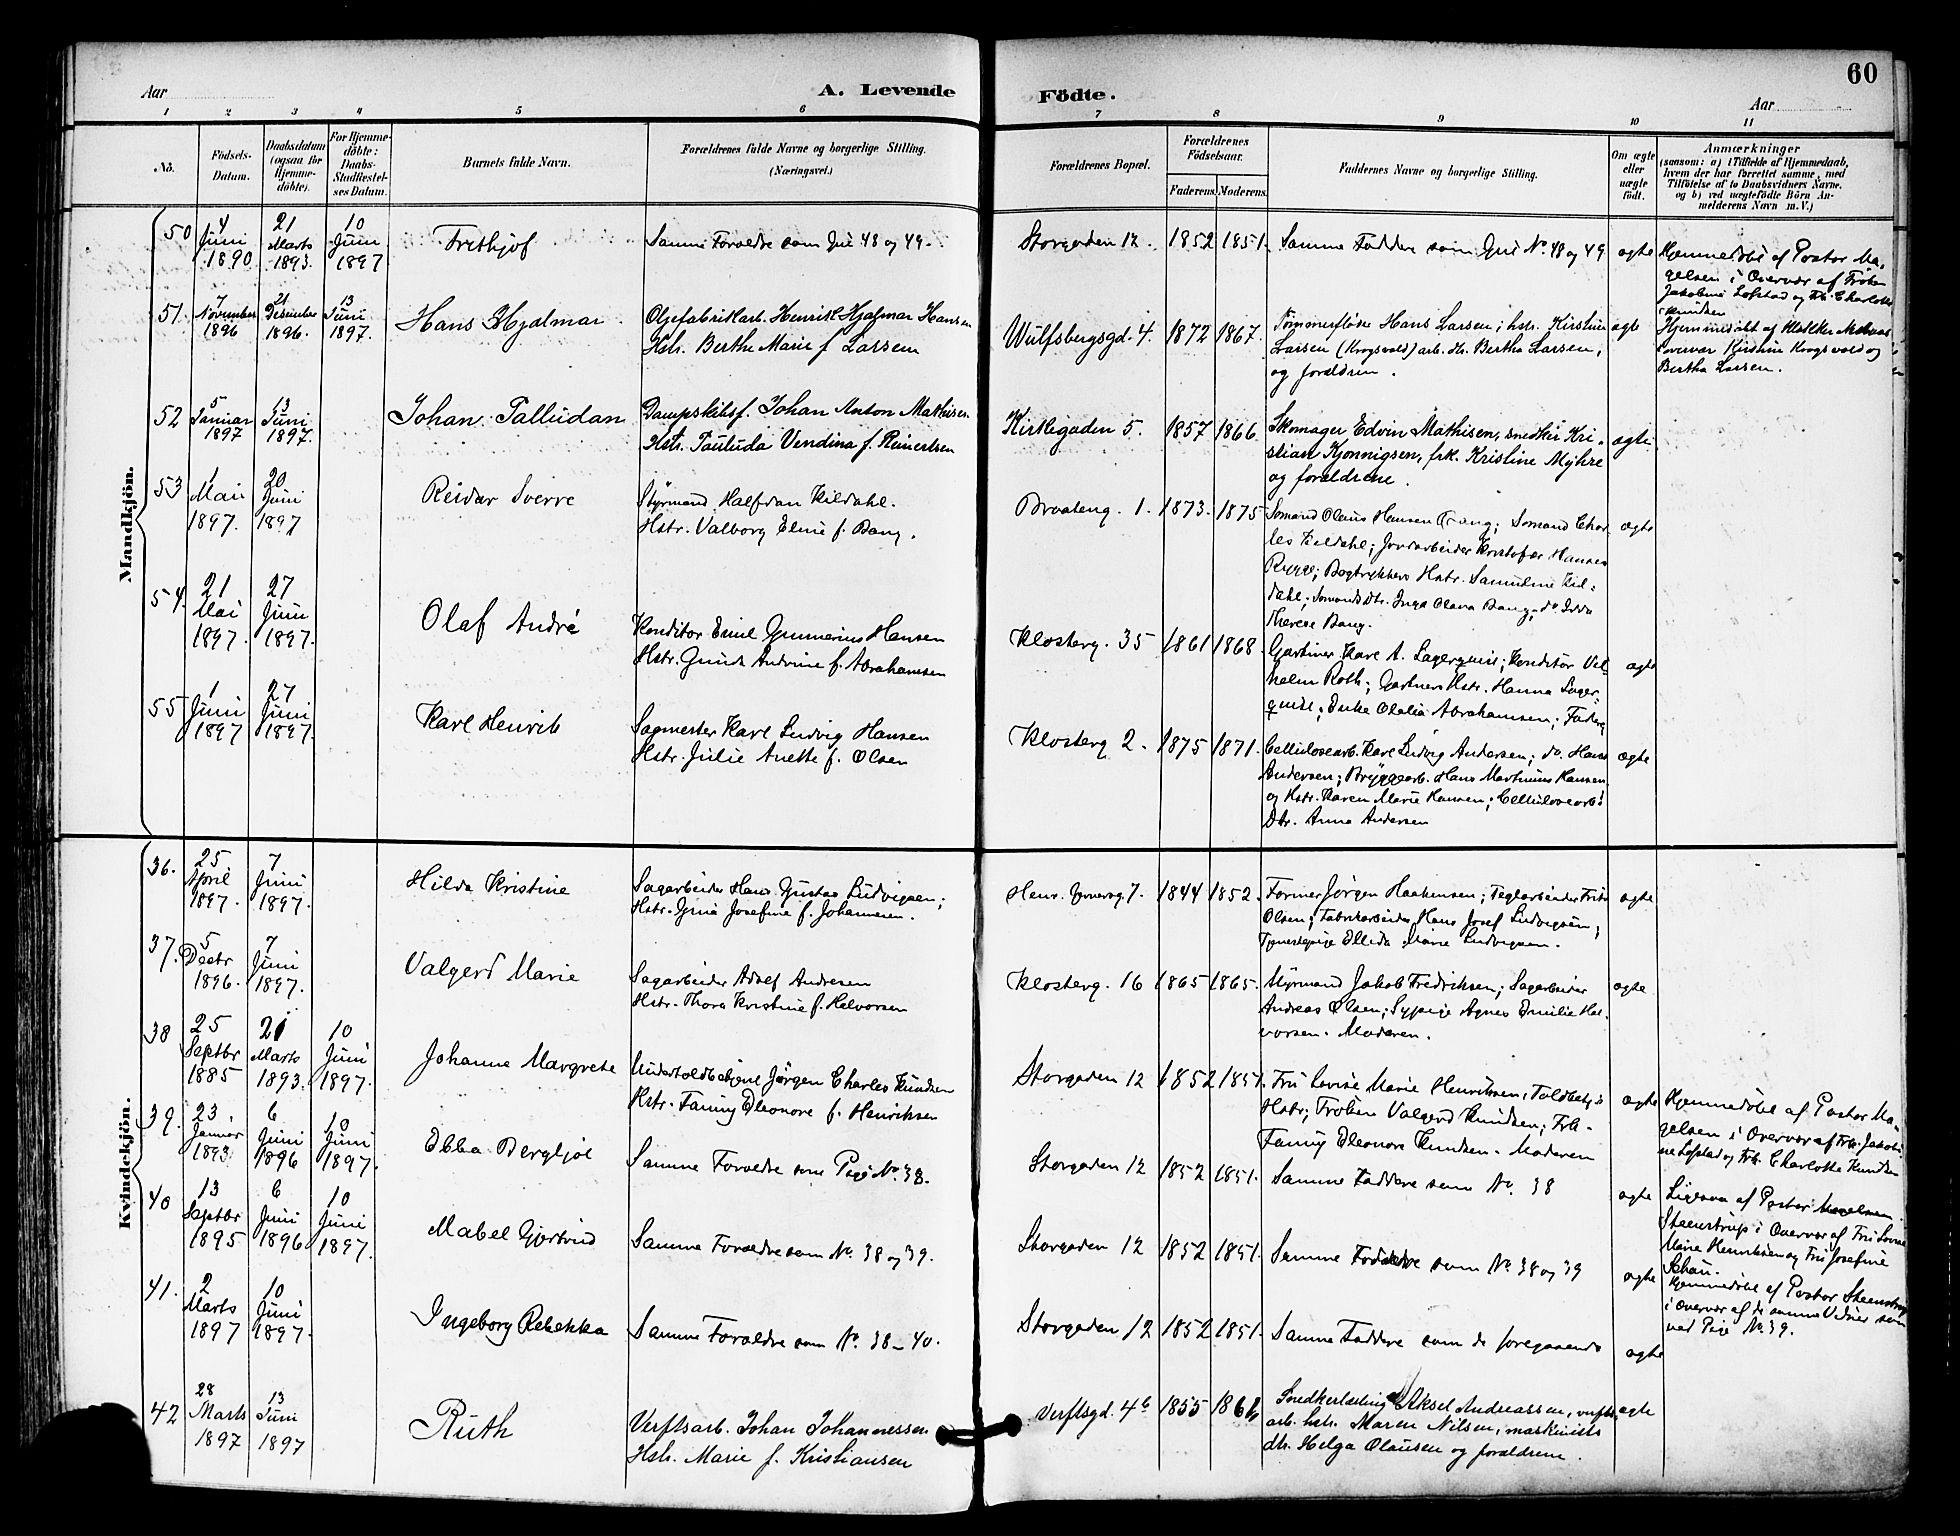 60
Aar
A. Levende
Födte.
Aar
1 2 3 4 5 6 7 8 9 10 11
No.
Födsels-
Datum.
Daabsdatum
(ogsaa for
Hjemme-
döbte).
For Hjemme-
döbte:
Daabs-
Stadfæstel-
ses Datum.
Barnets fulde Navn.
Forældrenes fulde Navne og borgerlige Stilling.
(Næringsvei.)
Forældrenes Bopæl.
Forældrenes
Födselsaar.
Faderens.
Moderens.
Faddernes Navne og borgerlige Stilling.
Om ægte
eller
uægte
födt.
Anmærkninger
(saasom: a) i Tilfælde af Hjemmedaab,
hvem der har forrettet samme, med
Tilföielse af to Daabsvidners Navne,
og b) ved uægtefödte Börn An-
melderens Navn m.V.)
Mandkjön.
50
4
Juni
1890
21
Marts
1893.
10
Juni
1897
Frithjof
Samme Foræeldre som Gut 48 og 49.
Storgaden 12.
1852
1851.
Samme Faddere som Gut No. 48 og 49
ægte
Hjemmedöbt af Pastor Ma-
gelsen i Overvær af Fröken
Jakobine Lofstad og Frk. Charlotte
Knudsen
51.
7
November
1896
21
Desember
1896.
13
Juni
1897.
Hans Hjalmar.
Oljefabrikarb. Henrik Hjalmar Hansen
Hstr. Berthe Marie f. Larsen
Wulfsbergsgd. 4.
1872
1867.
Tömmerfløder Hans Larsen; hstr. Kirstine
Larsen (Krogsvold) arb. dtr. Bertha Larsen,
og forældren.
ægte
Hjemmedöbt af
overvær Kirstine Krogsvold og
Bertha Larsen.
52
5
Januar
1897
13
Juni
1897.
Johan Palludan
Dampskibsf. Johan Anton Mathisen
Hstr. Pauluda Vendina f. Reinertsen
Kirkegaden 5.
1857
1866.
Skomager Edvin Mathisen, snedker Kri-
stian Kjonnigsen, frk. Kristine Myhre
og forældrene.
ægte
53
1
Mai
1897.
20
Juni
1897
Reidar Sverre
Styrmand Halfdan Kildahl.
Hstr. Valborg Eline f. Bang.
Braateng. 1.
1873.
1875
Sømand Olaus Hansen Bang; Sømand Char-
les Kildahl; Jordarbeider Kristofer Hansen
Rygge; Bogtrykkers Hstr. Samuline Kil-
dahl; Sømands Dtr. Inga Olava Bang, do. Ida
Therese Bang.
ægte
54.
21
Mai
1897.
27
Juni
1897.
Olaf André
Konditor Emil Gunnerius Hansen
Hstr. Gunda Andrine f. Abrahamsen
Klosterg. 35
1861
1868.
Gartner Karl A. Lagerquist; Konditor Vil-
helm Roth; Gartners Hstr. Hanna Lager-
quist; Enke Olalia Abrahamsen; Faderen
ægte
55
1
Juni
1897
27
Juni
1897.
Karl Henrik
Sagmester Karl Ludvig Hansen
Hstr. Julie Anette f. Olsen
Klosterg 2.
1875
1871.
Cellulosearb. Karl Ludvig Andersen; do. Hans
Andersen; Bryggearb. Hans Martinius Hansen
og Hstr. Karen Marie Hansen; Cellulosearb.s
Dtr. Anna Andersen
ægte
Kvindekjön.
36.
25
April
1897.
7
Juni
1897.
Hilda Kristine
Sagarbeider Hans Gustav Ludvigsen;
Hstr. Gina Josefine f. Johannesen.
7.
1844
1852.
Former Jörgen Haakensen; Teglarbeider Frits
Olsen; Fabrikarbeider Hans Josef Ludvigsen;
Tjenestepige Ellida Marie Ludvigsen.
ægte
37.
5
Decbr
1896.
7
Juni
1897.
Valgerd Marie
Sagarbeider Adolf Andresen
Hstr. Thora Kristine f. Halvorsen
Klosterg. 16
1865
1865.
Styrmand Jakob Fredriksen; Sagarbeider
Andreas Olsen; Sypige Agnes Emilie Hal-
vorsen. Moderen.
ægte
38
25
Septbr
1885
21
Marts
1893.
10
Juni
1897.
Johanne Margrete
Underholdbetjent Jørgen Charles Knudsen
Hstr. Fanny Eleonore f. Henriksen
Storgaden 12
1852
1851.
Fru Lovise Marie Henriksen, Toldbetj.s
Hstr; Fröken Valgerd Knudsen; Frk.
Fanny Eleonora Knudsen. Moderen
ægte
Hjemmedöbt af Pastor Ma-
gelsen i Overvær af Frk. Jakobi-
ne Lofstad og Frk. Charlotte Knudsen
39.
23.
Januar
1893.
6
Juni
1896
10
Juni
1897.
Ebba Bergljot
Samme Forældre som Pige No. 38.
Storgaden 12
1852
1851.
Samme Faddere som No. 38
ægte
Ligesaa af Pastor
Steenstrup i Overvær af Fru Lovise
Marie Henriksen og Fru Josefine
Schau.
40
13
Septbr
1895
6
Juni
1896
10
Juni
1897.
Mabel Gjertrud
Samme Forældre som No. 38 og 39.
Storgaden 12
1852
1851.
Samme Faddere som No. 38 og 39
ægte
Hjemmedöbt af Pastor Steenstrup
i overvær af de samme Vidner som
ved Pige No. 39.
41.
2
Marts
1897
10
Juni
1897.
Ingeborg Rebekka
Samme Forældre som No. 38 - 40.
Storgaden 12
1852
1851.
Samme Faddere som de foregaaende
ægte
42
28
Marts
1897
13
Juni
1897
Ruth
Verftsarb. Johan Johannessen
Hstr. Marie f. Kristiansen
Verftsgd. 4b
1855
Snedkerlærling Aksel Andreassen, verfts-
arb. hstr. Maren Nilsen, maskinists
dtr. Helga Olausen og forældrene.
ægte